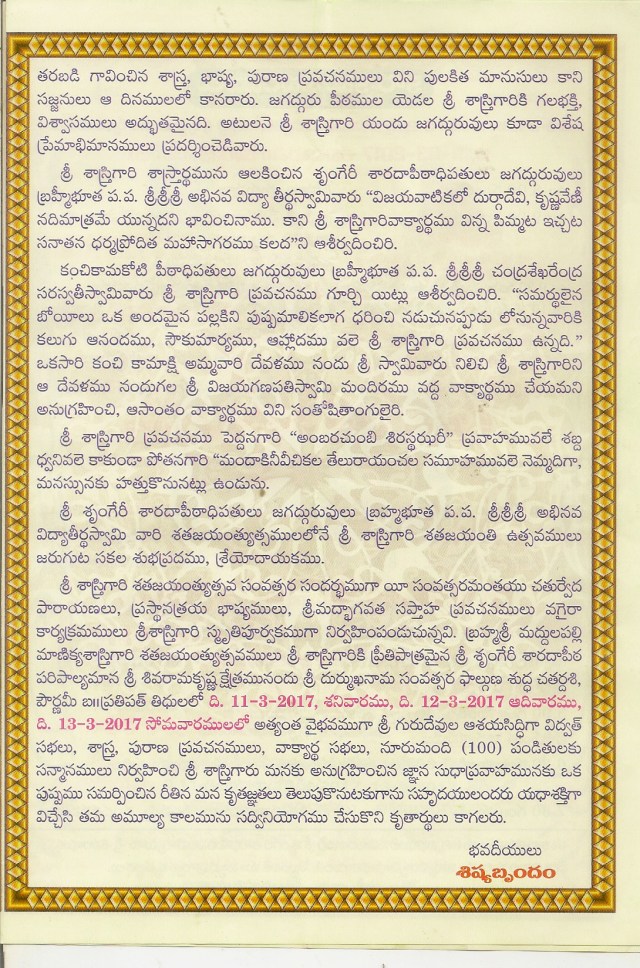 తరబడి గావించిన శాస్త్ర, భాష్య, పురాణ ప్రవచనములు విని పులకిత మానుసులు కాని
సజ్జనులు ఆ దినములలో కానరారు. జగద్గురు పీఠముల యెడల శ్రీ శాస్త్రిగారికి గలభక్తి,
విశ్వాసములు అద్భుతమైనది. అటులనె శ్రీ శాస్త్రిగారి యందు జగద్గురువులు కూడా విశేష
ప్రేమాభిమానములు ప్రదర్శించెడివారు.
శ్రీ శాస్త్రిగారి శాస్త్రార్థమును ఆలకించిన శృంగేరీ శారదాపీఠాధిపతులు జగద్గురువులు
బ్రహ్మీభూత ప.ప. శ్రీశ్రీశ్రీ అభినవ విద్యా తీర్థస్వామివారు “విజయవాటికలో దుర్గాదేవి, కృష్ణవేణీ
నదిమాత్రమే యున్నదని భావించినాము. కాని శ్రీ శాస్త్రిగారివాక్యార్థము విన్న పిమ్మట ఇచ్చట
సనాతన ధర్మప్రోదిత మహాసాగరము కలద”ని ఆశీర్వదించిరి.
కంచికామకోటి పీఠాధిపతులు జగద్గురువులు బ్రహ్మీభూత ప.ప. శ్రీశ్రీశ్రీ చంద్రశేఖరేంద్ర
సరస్వతీస్వామివారు శ్రీ శాస్త్రిగారి ప్రవచనము గూర్చి యిట్లు ఆశీర్వదించిరి. “సమర్థులైన
బోయీలు ఒక అందమైన పల్లకిని పుష్పమాలికలాగ ధరించి నడుచునప్పుడు లోనున్నవారికి
కలుగు ఆనందము, సౌకుమార్యము, ఆహ్లాదము వలె శ్రీ శాస్త్రిగారి ప్రవచనము ఉన్నది.”
ఒకసారి కంచి కామాక్షి అమ్మవారి దేవళము నందు శ్రీ స్వామివారు నిలిచి శ్రీ శాస్త్రిగారిని
ఆ దేవళము నందుగల శ్రీ విజయగణపతిస్వామి మందిరము వద్ద వాక్యార్థము చేయమని
అనుగ్రహించి, ఆసాంతం వాక్యార్థము విని సంతోషితాంగులైరి.
శ్రీ శాస్త్రిగారి ప్రవచనము పెద్దనగారి “అంబరచుంబి శిరస్థఝరీ” ప్రవాహమువలే శబ్ద
ధ్వనివలె కాకుండా పోతనగారి “మందాకినీవీచికల తేలురాయంచల సమూహమువలె నెమ్మదిగా,
మనస్సునకు హత్తుకొనునట్లు ఉండును.
శ్రీ శృంగేరీ శారదాపీఠాధిపతులు జగద్గురువులు బ్రహ్మభూత ప.ప. శ్రీశ్రీశ్రీ అభినవ
విద్యాతీర్థస్వామి వారి శతజయంత్యుత్సములలోనే శ్రీ శాస్త్రిగారి శతజయంతి ఉత్సవములు
జరుగుట సకల శుభప్రదము, శ్రేయోదాయకము.
శ్రీ శాస్త్రిగారి శతజయంత్యుత్సవ సంవత్సర సందర్భముగా యీ సంవత్సరమంతయు చతుర్వేద
పారాయణలు, ప్రస్థానత్రయ భాష్యములు, శ్రీమద్భాగవత సప్తాహ ప్రవచనములు వగైరా
కార్యక్రమములు శ్రీశాస్త్రిగారి స్మృతిపూర్వకముగా నిర్వహింపందుచున్నవి. బ్రహ్మశ్రీ మద్దులపల్లి
మాణిక్యశాస్త్రిగారి శతజయంత్యుత్సవములు శ్రీ శాస్త్రిగారికి ప్రీతిపాత్రమైన శ్రీ శృంగేరీ శారదాపీఠ
పరిపాల్యమాన శ్రీ శివరామకృష్ణక్షేత్రమునందు శ్రీ దుర్ముఖనామ సంవత్సర ఫాల్గుణ శుద్ధ చతర్దశి,
పౌర్ణమీ బ॥ప్రతిపత్ తిధులలో ది. 11-3-2017, శనివారము, ది. 12-3-2017 ఆదివారము,
ది. 13-3-2017 సోమవారములలో అత్యంత వైభవముగా శ్రీ గురుదేవుల ఆశయసిద్ధిగా విద్వత్
సభలు, శాస్త్ర, పురాణ ప్రవచనములు, వాక్యార్థ సభలు, నూరుమంది (100) పండితులకు
సన్మానములు నిర్వహించి శ్రీ శాస్త్రిగారు మనకు అనుగ్రహించిన జ్ఞాన సుధాప్రవాహమునకు ఒక
పుష్పము సమర్పించిన రీతిన మన కృతజ్ఞతలు తెలుపుకొనుటకుగాను సహృదయులందరు యధాశక్తిగా
విచ్చేసి తమ అమూల్య కాలమును సద్వినియోగము చేసుకొని కృతార్థులు కాగలరు.
భవదీయులు
శిష్యబృందం